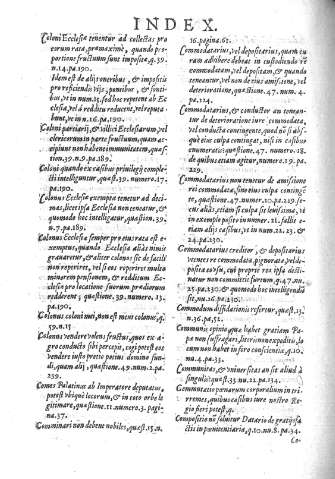 INDEX.
Coloni Ecclesiæ tenentur ad collectas pro
eorum rata, præmaximè, quando pro
portione fructuum sunt impositæ, q.39.
n.14.pa.190.
Idem est de alijs oneribus, & impositis
pro reficiendis vijs, pontibus, & fonti
bus,
Ecclesia, vel
bent, ut in nu.16.pa.190.
Coloni partiarij, & villici Ecclesiarum, vel
clericorum in parte fructuum, quam ac-
cipiunt non habent immunitatem, quæst-
ion.39.n.9.pa.189.
Coloni quando ex quibus privilegijs comple
cti intelliguntur, quæst.39. numero.17.
pa.190.
Colonus Ecclesiæ exemptus tenetur ad deci
mas, licet ipsa Ecclesia non teneatur, &
quomodo hoc intelligatur, quæstion.39.
n.7.pa.189.
Colonus Ecclesiæ semper pro eius rata est e-
xemptus, quando Ecclesia aliàs nimis
gravaretur, & aliter colonos sic de facili
non reperiret, vel si eos reperiret multo
minorem pensionem, & redditum Ec-
clesiæ pro locatione suorum prædiorum
redderent; quæstione.39. numero.13.
pa.190.
Colonus coloni mei, non est meus colonus, q.
59.n.15
Colonus vendere volens fructus, quos ex a-
gro conducto sibi percepit, cogi potest eos
vendere iusto precio potius domino fun-
di, quam alij, quæstione.49.num.2.pa.
259.
Comes Palatinus ab Imperatore deputatus,
potest ubique locorum, & in toto orbe le
gitimare, quæstione.11.numero.3. pagi-
na.37.
Comminari non debent nobiles, quæst.15.n.
16.pagina.62.
Commodatarius, vel depositarius, quam cu
ram adhibere debeat in custodiendo rē
commodatam, vel depositam, & quando
teneantur, vel non de eius amissione, vel
deterioratione, quæstione.47. num.4.
pa.114.
Commodatarius, & conductor an tenean-
tur de deterioratione iure commodata,
vel conducta contingente, quod nū si abs
que eius culpa contingat, nisi in casibus
enumeratis: quæstione.47. numero.18.
de quibus etiam agitur, numero.19.pa.
229.
Commodatarius non tenetur de amissione
rei commodatæ, sino eius culpa continge
re, quæstione.47.numero.20.pa.219.
24.pa.230.
Commodatarius creditor, & depositarius
vel
positam
datur non committit furtum, q.47.nu.
25.pa.230. & quomodo hoc intelligendū
sit, nu.26.pa.230.
Commodum diffidationis refertur, quæst.13.
n.16.pa.52.
Communis opinio quæ habet gratiam Pa-
pæ non suffragari, licet non expediti, lo
cum non habet in foro conscientiæ, q.10.
nu.4.pa.33.
Communitas, & universitas an sit aliud à
singulis: quæst.35.nu.22.pa.134.
Commutatio pœnarum corporalium in tri-
remes, quibus casibus iure nostro Re-
gio fieri potest, q.
Compositio nō solvitur Datario de gratijs fa
ctis in pœnitentiaria, q.10.nu.8.pa.34.
Co-